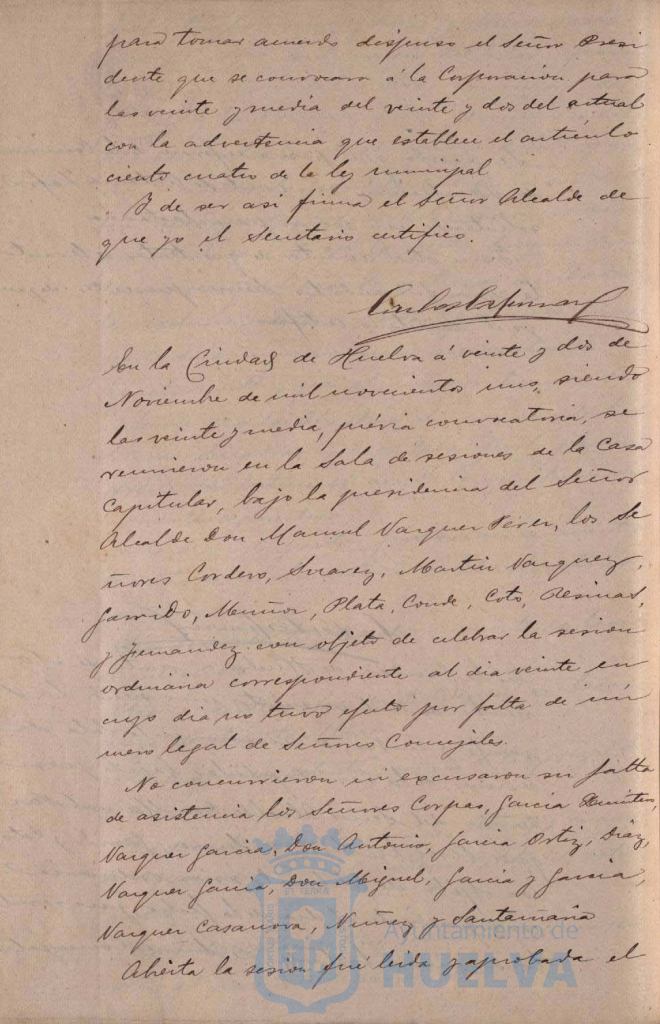 para tomar acuerdo dispuso el Señor Presi
dente que se convocara á la Corporacion para
las veinte y media del veinte y dos del actual
con la advertencia que establece el artículo
ciento cuatro de la ley municipal
Y de ser asi firma el Señor Alcalde de
que yo el Secretario certifico.
En la Ciudad de Huelva á veinte y dos de
Noviembre de mil novecientos uno, siendo
las veinte y media, prévia convocatoria, se
reunieron en la Sala de sesiones de la Casa
Capitular, bajo la presidencia del Señor
Alcalde Don Manuel Vazquez Perez, los Se
ñores Cordero, Suarez, Martin Vazquez,
Garrido, Muñoz, Plata, Conde, Coto,
y Fernandez con objeto de celebrar la sesion
ordinaria correspondiente al dia veinte en
cuyo dia no tuvo efecto por falta de nú
mero legal de Señores Concejales.
No concurrieron ni excusaron su falta
de asistencia los Señores Corpas, Garcia
Vazquez Garcia, Don Antonio, Garcia Ortiz, Diaz,
Vazquez Garcia, Don Miguel, Garcia y Garcia,
Vazquez Casanova, Nuñez y Santamaria
Abierta la sesion fué leida y aprobada el
Ayuntamiento de
HUELVA